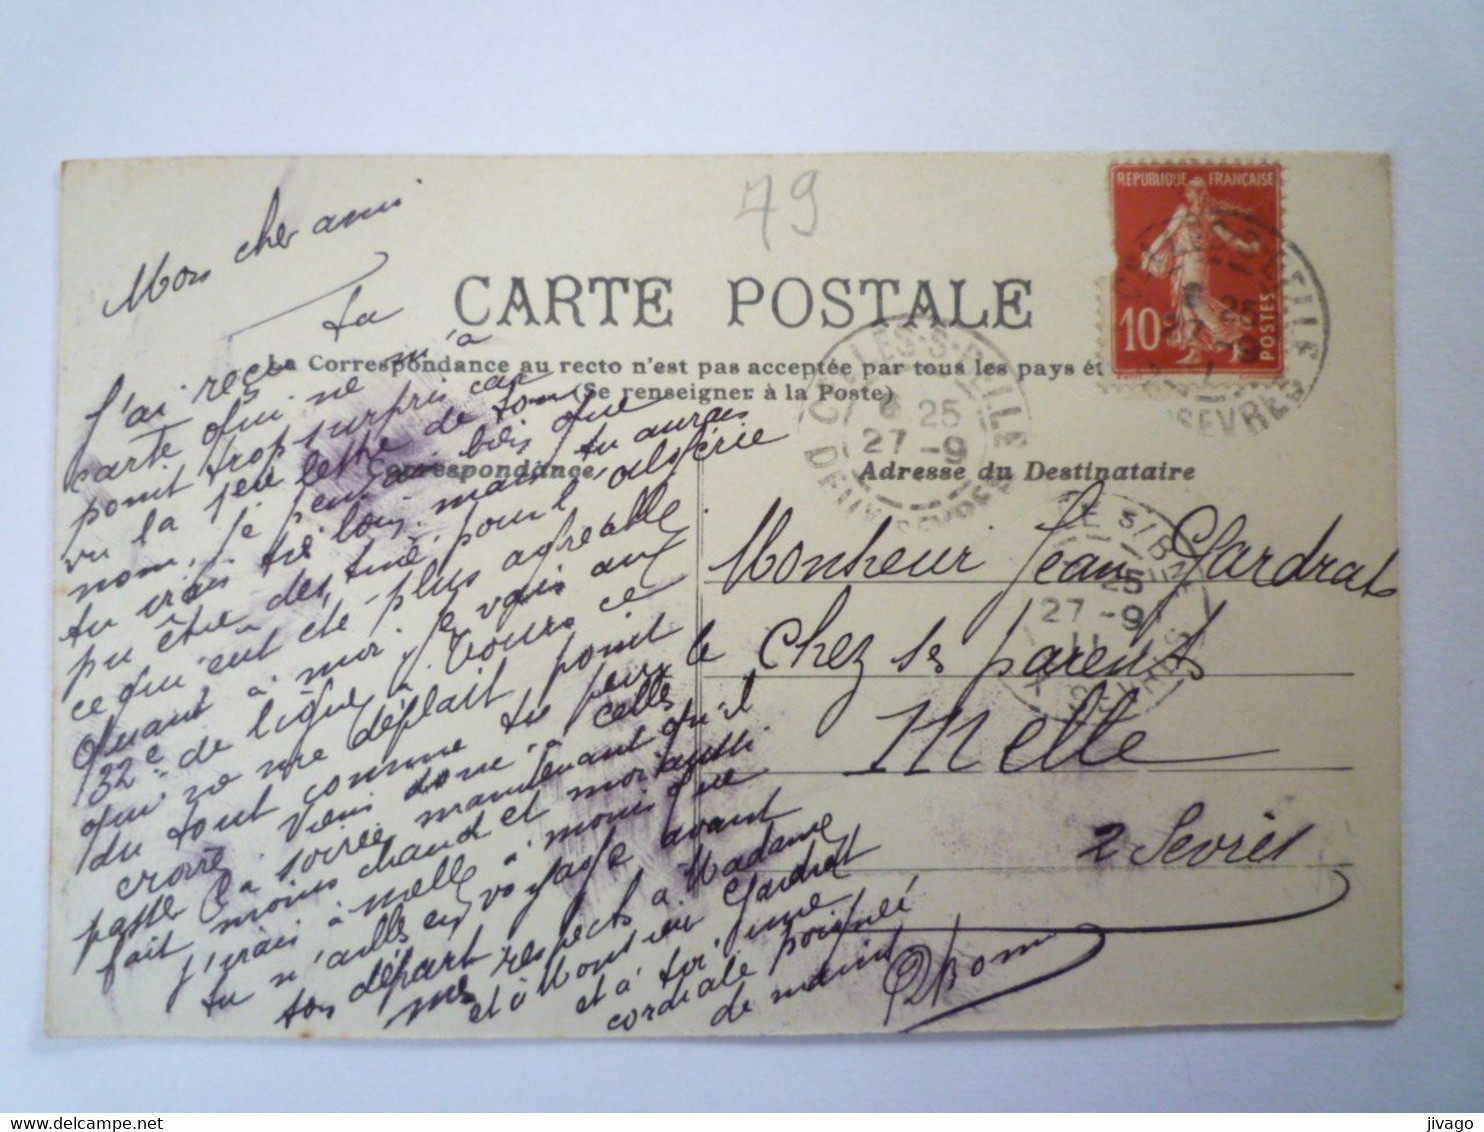 79
REPUBLIQUE FRANÇAISE
10
POSTES
CARTE POSTALE
La Correspondance au recto n'est pas acceptée par tous les pays ét
(Se renseigner à la Poste)
Correspondance
Adresse du Destinataire
CELLES-S-BELLE
6 25
27 -9
DEUX SEVRES
25
27 -9
11
Mon cher ami
J'ai reçu ta
carte qui ne m'a
point trop surpris car
vu la feu lettre de ton
nom, je pensais bien que
tu irais très loin, mais tu aurais
pu être destiné pour l'algérie
ce qui eut été plus agreable
Quant à moi je vais au
32e de ligne à Tours ce
qui ne me déplait point
du tout comme tu peux le
croire. Viens donc à Celles
passer la soirée maintenant qu'il
fait moins chaud et mortaussi
j'irais à melle à moins que
tu n'ailles en voyage avant
ton départ
mes respects à Madame
et à Monsieur Gardrat
et à toi une
cordiale poignée
de main
Monsieur Jean Gardrat
chez ses parents
Melle
2 Sevres